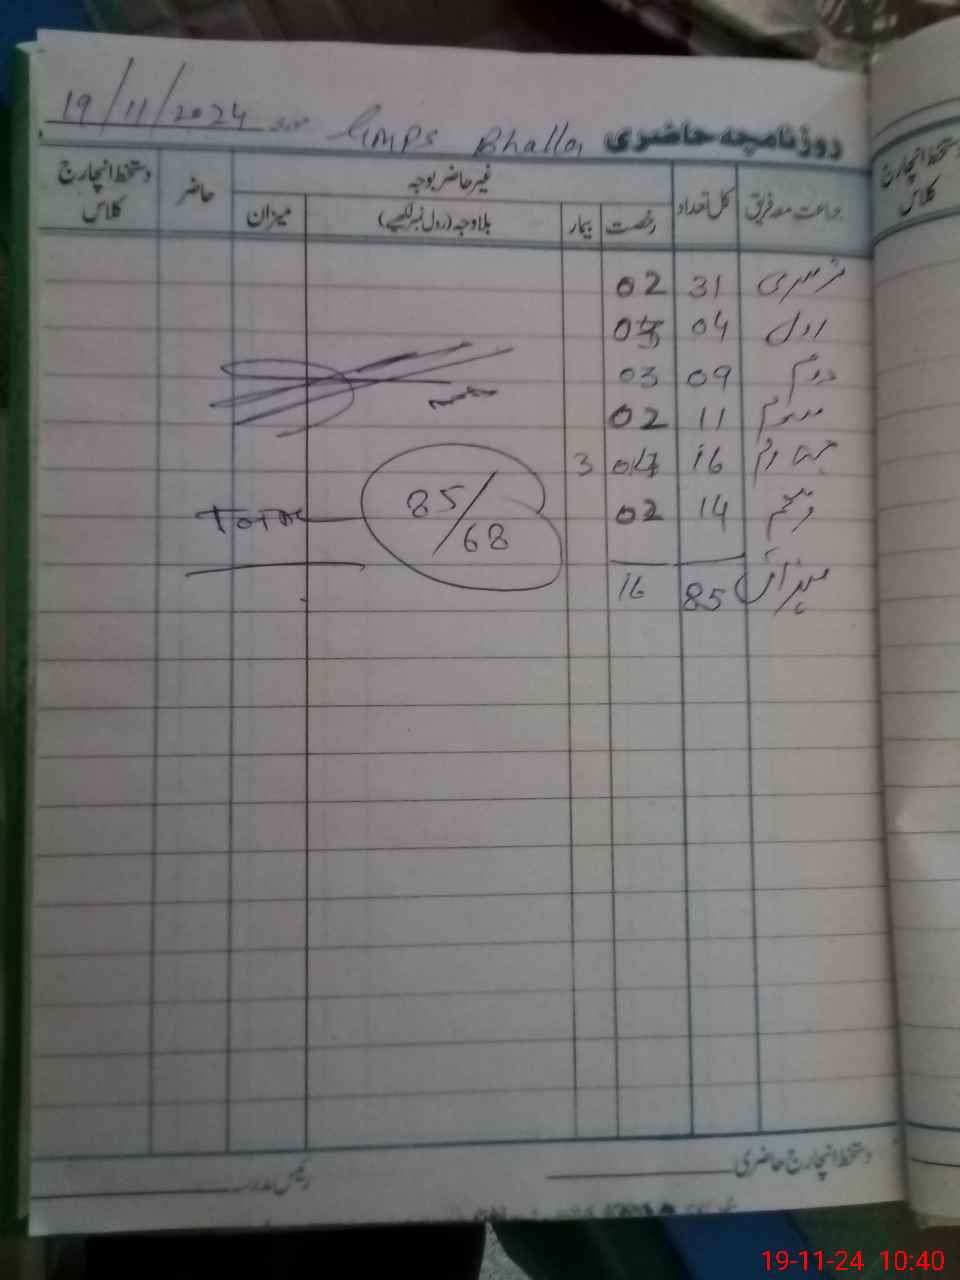 روزنامچہ حاضری GMPS Bhalla مورخہ 19/11/2024
جماعت معہ فریق کل تعداد غیر حاضر بوجہ حاضر دستخط انچارج کلاس
رخصت بیمار بلاوجہ (رول نمبر لکھیے) میزان
نرسری 31 02
اول 04
دوم 09 03
سوم 11 02
چہارم 16 3
پنجم 14 02
Total 85/68
میزان 85 16
دستخط انچارج حاضری
رئیس مدرسہ
دستخط انچارج
کلاس
19-11-24 10:40